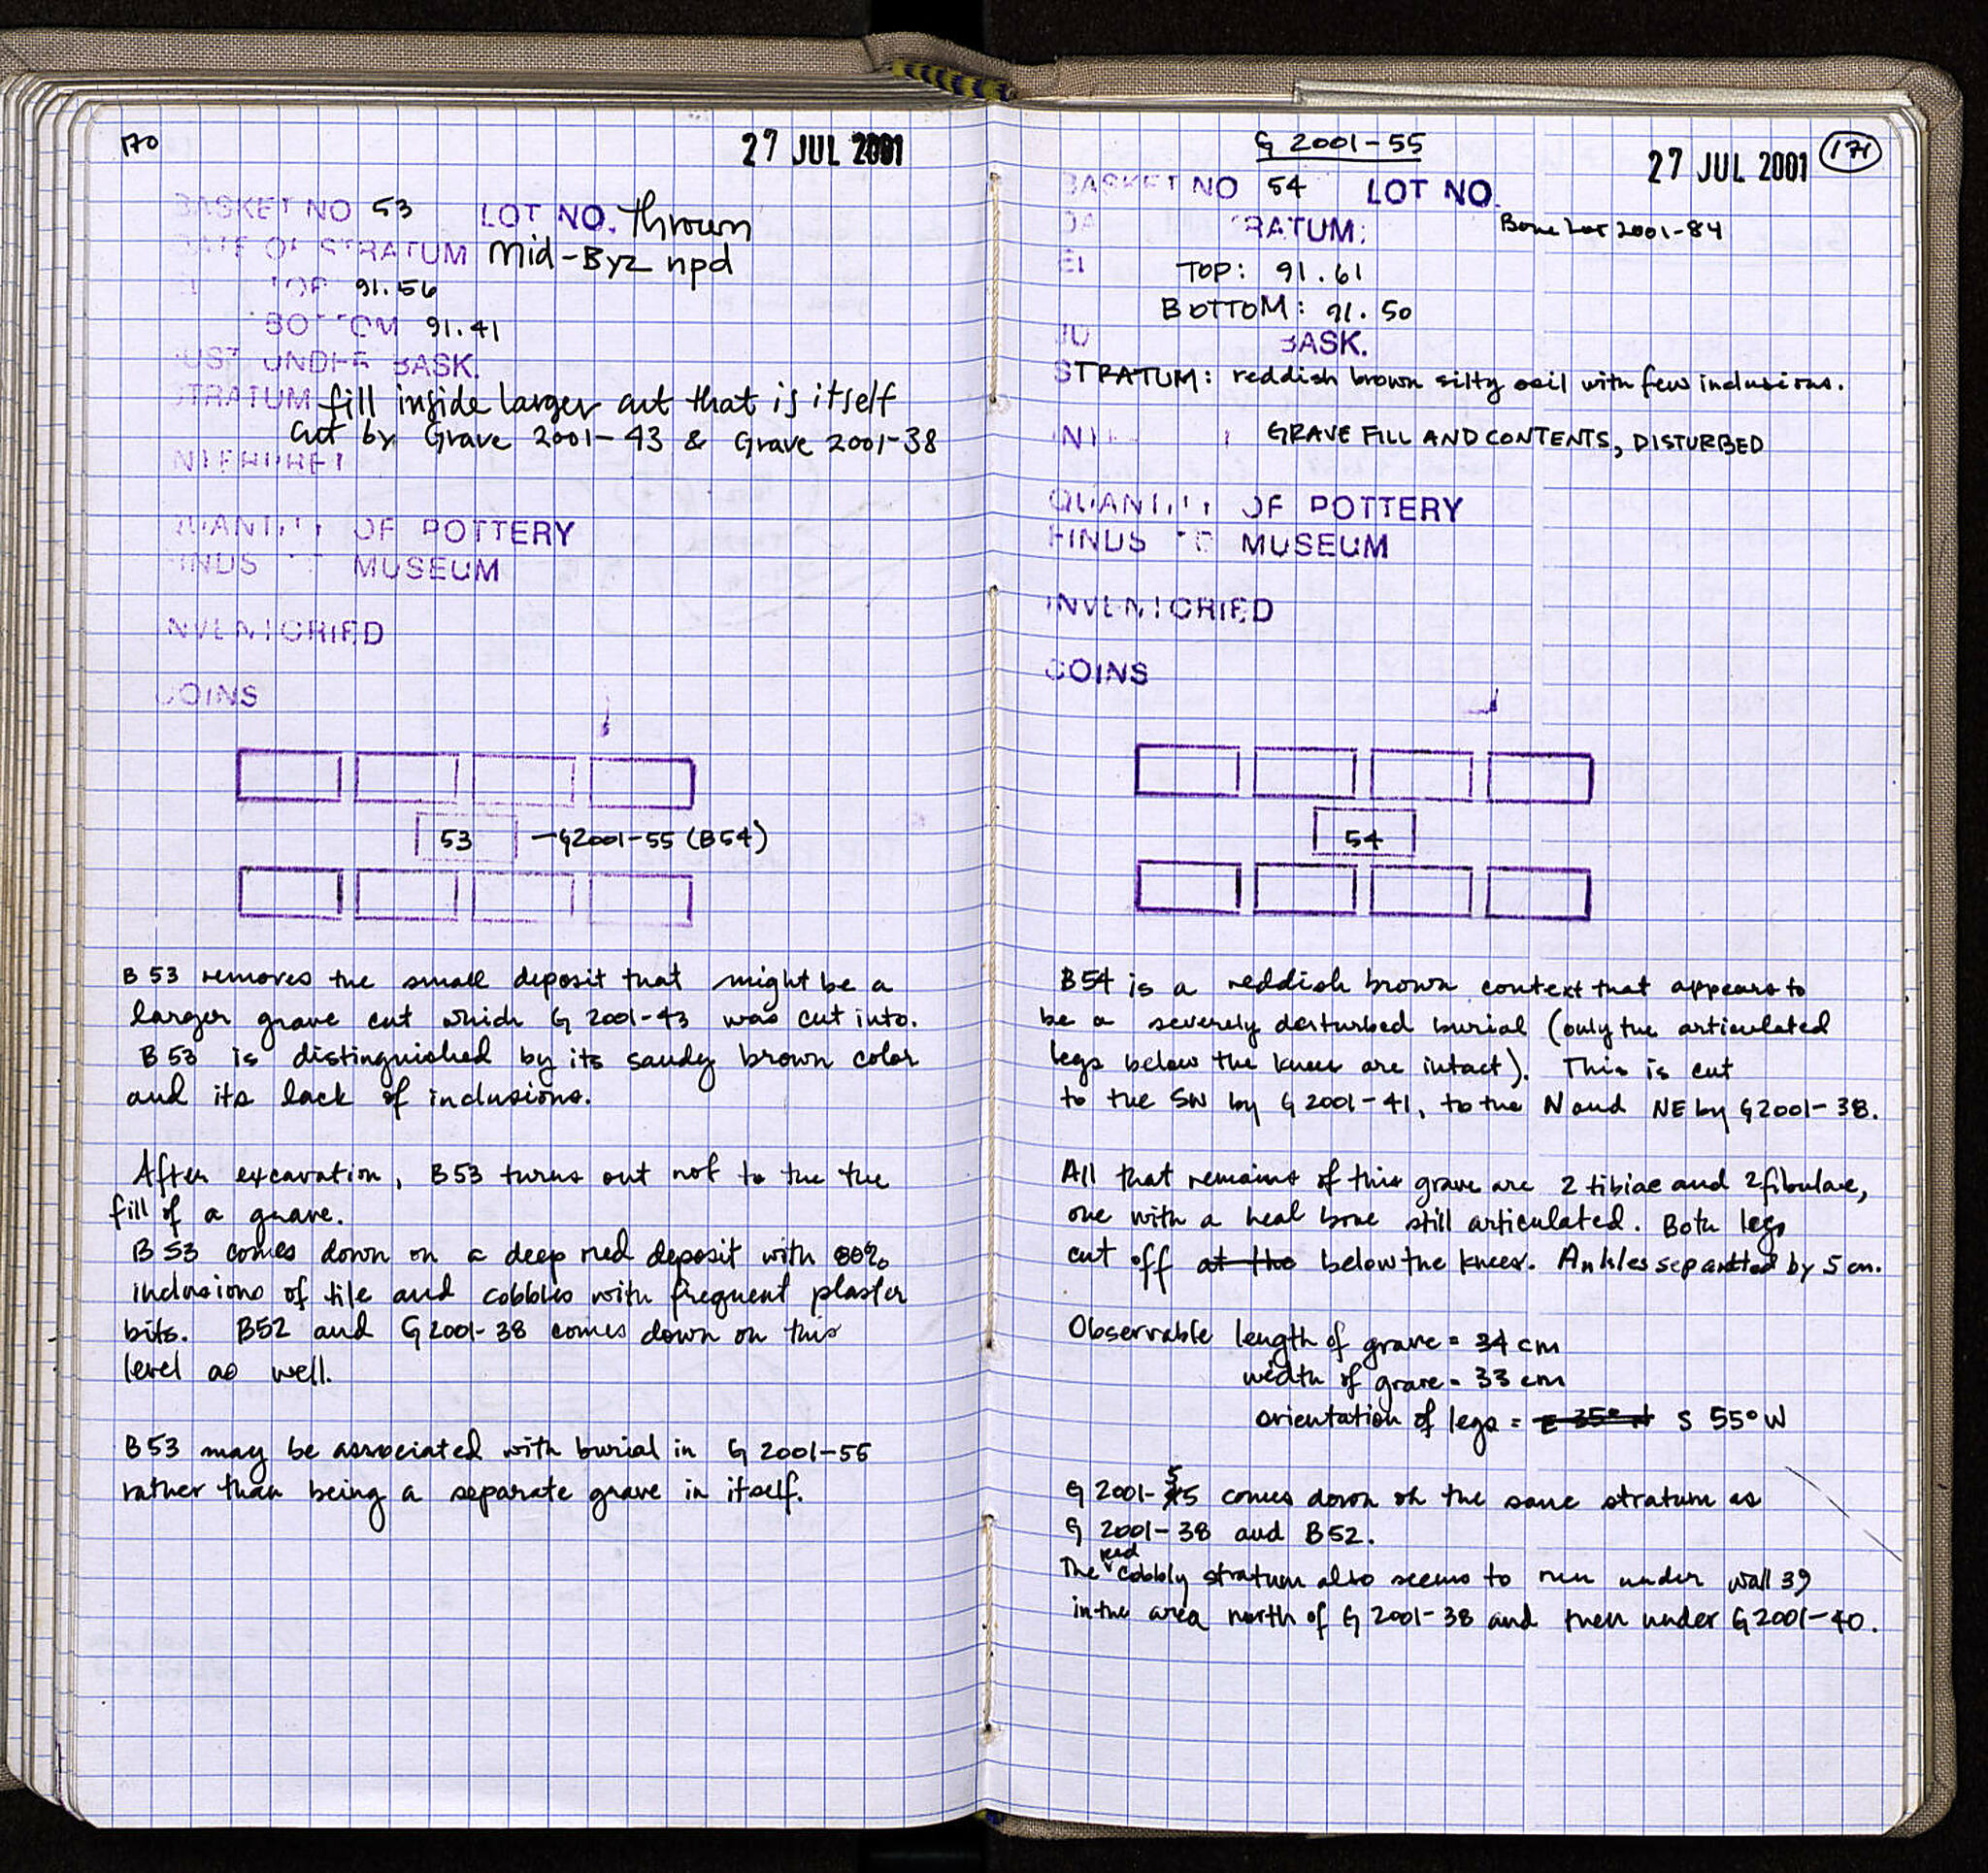 170
27 JUL 2001
BASKET NO 53 LOT NO. Thrown
DATE OF STRATUM Mid-Byz npd
TOP 91.56
BOTTOM 91.41
JUST UNDER BASK.
STRATUM fill inside larger cut that is itself
cut by Grave 2001-43 & Grave 2001-38
QUANTITY OF POTTERY
FINDS TO MUSEUM
INVENTORIED
COINS
53 – G2001-55 (B54)
B 53 removes the small deposit that might be a
larger grave cut which G 2001-43 was cut into.
B 53 is distinguished by its sandy brown color
and its lack of inclusions.
After excavation, B53 turns out not to the the
fill of a grave.
B 53 comes down on a deep red deposit with 80%
inclusions of tile and cobbles with frequent plaster
bits. B52 and G 2001-38 comes down on this
level as well.
B 53 may be associated with burial in G 2001-55
rather than being a separate grave in itself.
G 2001-55
27 JUL 2001
171
BASKET NO 54 LOT NO.
RATUM: Bone Lot 2001-84
TOP: 91.61
BOTTOM: 91.50
BASK.
STRATUM: reddish brown silty soil with few inclusions.
GRAVE FILL AND CONTENTS, DISTURBED
QUANTITY OF POTTERY
FINDS TO MUSEUM
INVENTORIED
COINS
54
B54 is a reddish brown context that appears to
be a severely desturbed burial (only the articulated
legs below the knees are intact). This is cut
to the SW by G 2001-41, to the N and NE by G2001-38.
All that remains of this grave are 2 tibiae and 2 fibulae,
one with a heal bone still articulated. Both legs
cut off at the below the knees. Ankles separated by 5 cm.
Observable length of grave = 34 cm
width of grave = 33 cm
orientation of legs = E 35° N S 55° W
G 2001-55 comes down on the same stratum as
G 2001-38 and B52.
The red cobbly stratum also seems to run under wall 39
in the area north of G 2001-38 and then under G2001-40.